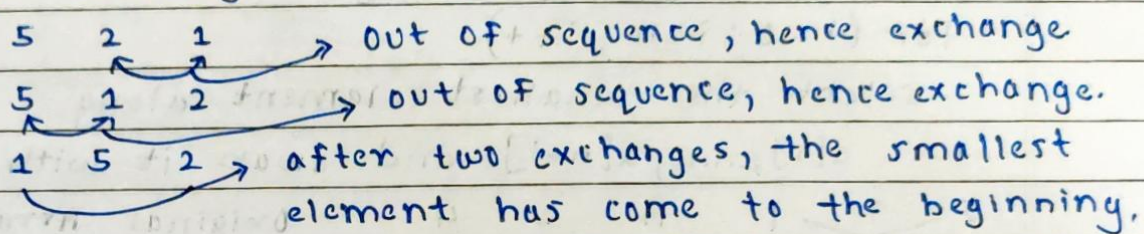 5 2 1 out of sequence, hence exchange
5 1 2 out of sequence, hence exchange.
1 5 2 after two exchanges, the smallest
element has come to the beginning.